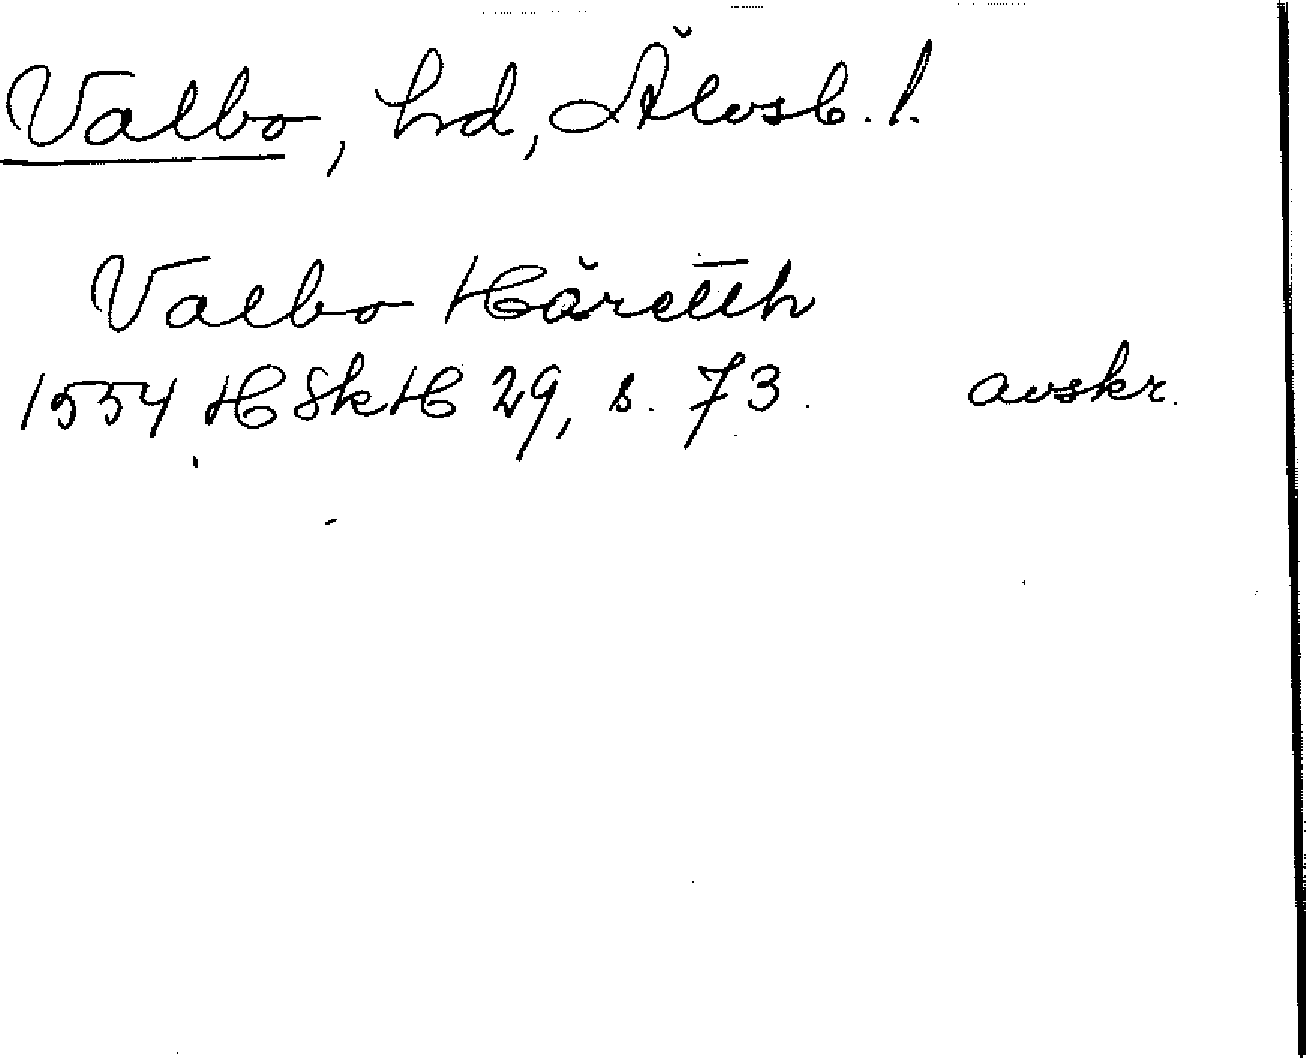 Valbo, hd, Älvsb. l.
Valbo Häretth
1554 HSkH 29, s. 73. avskr.